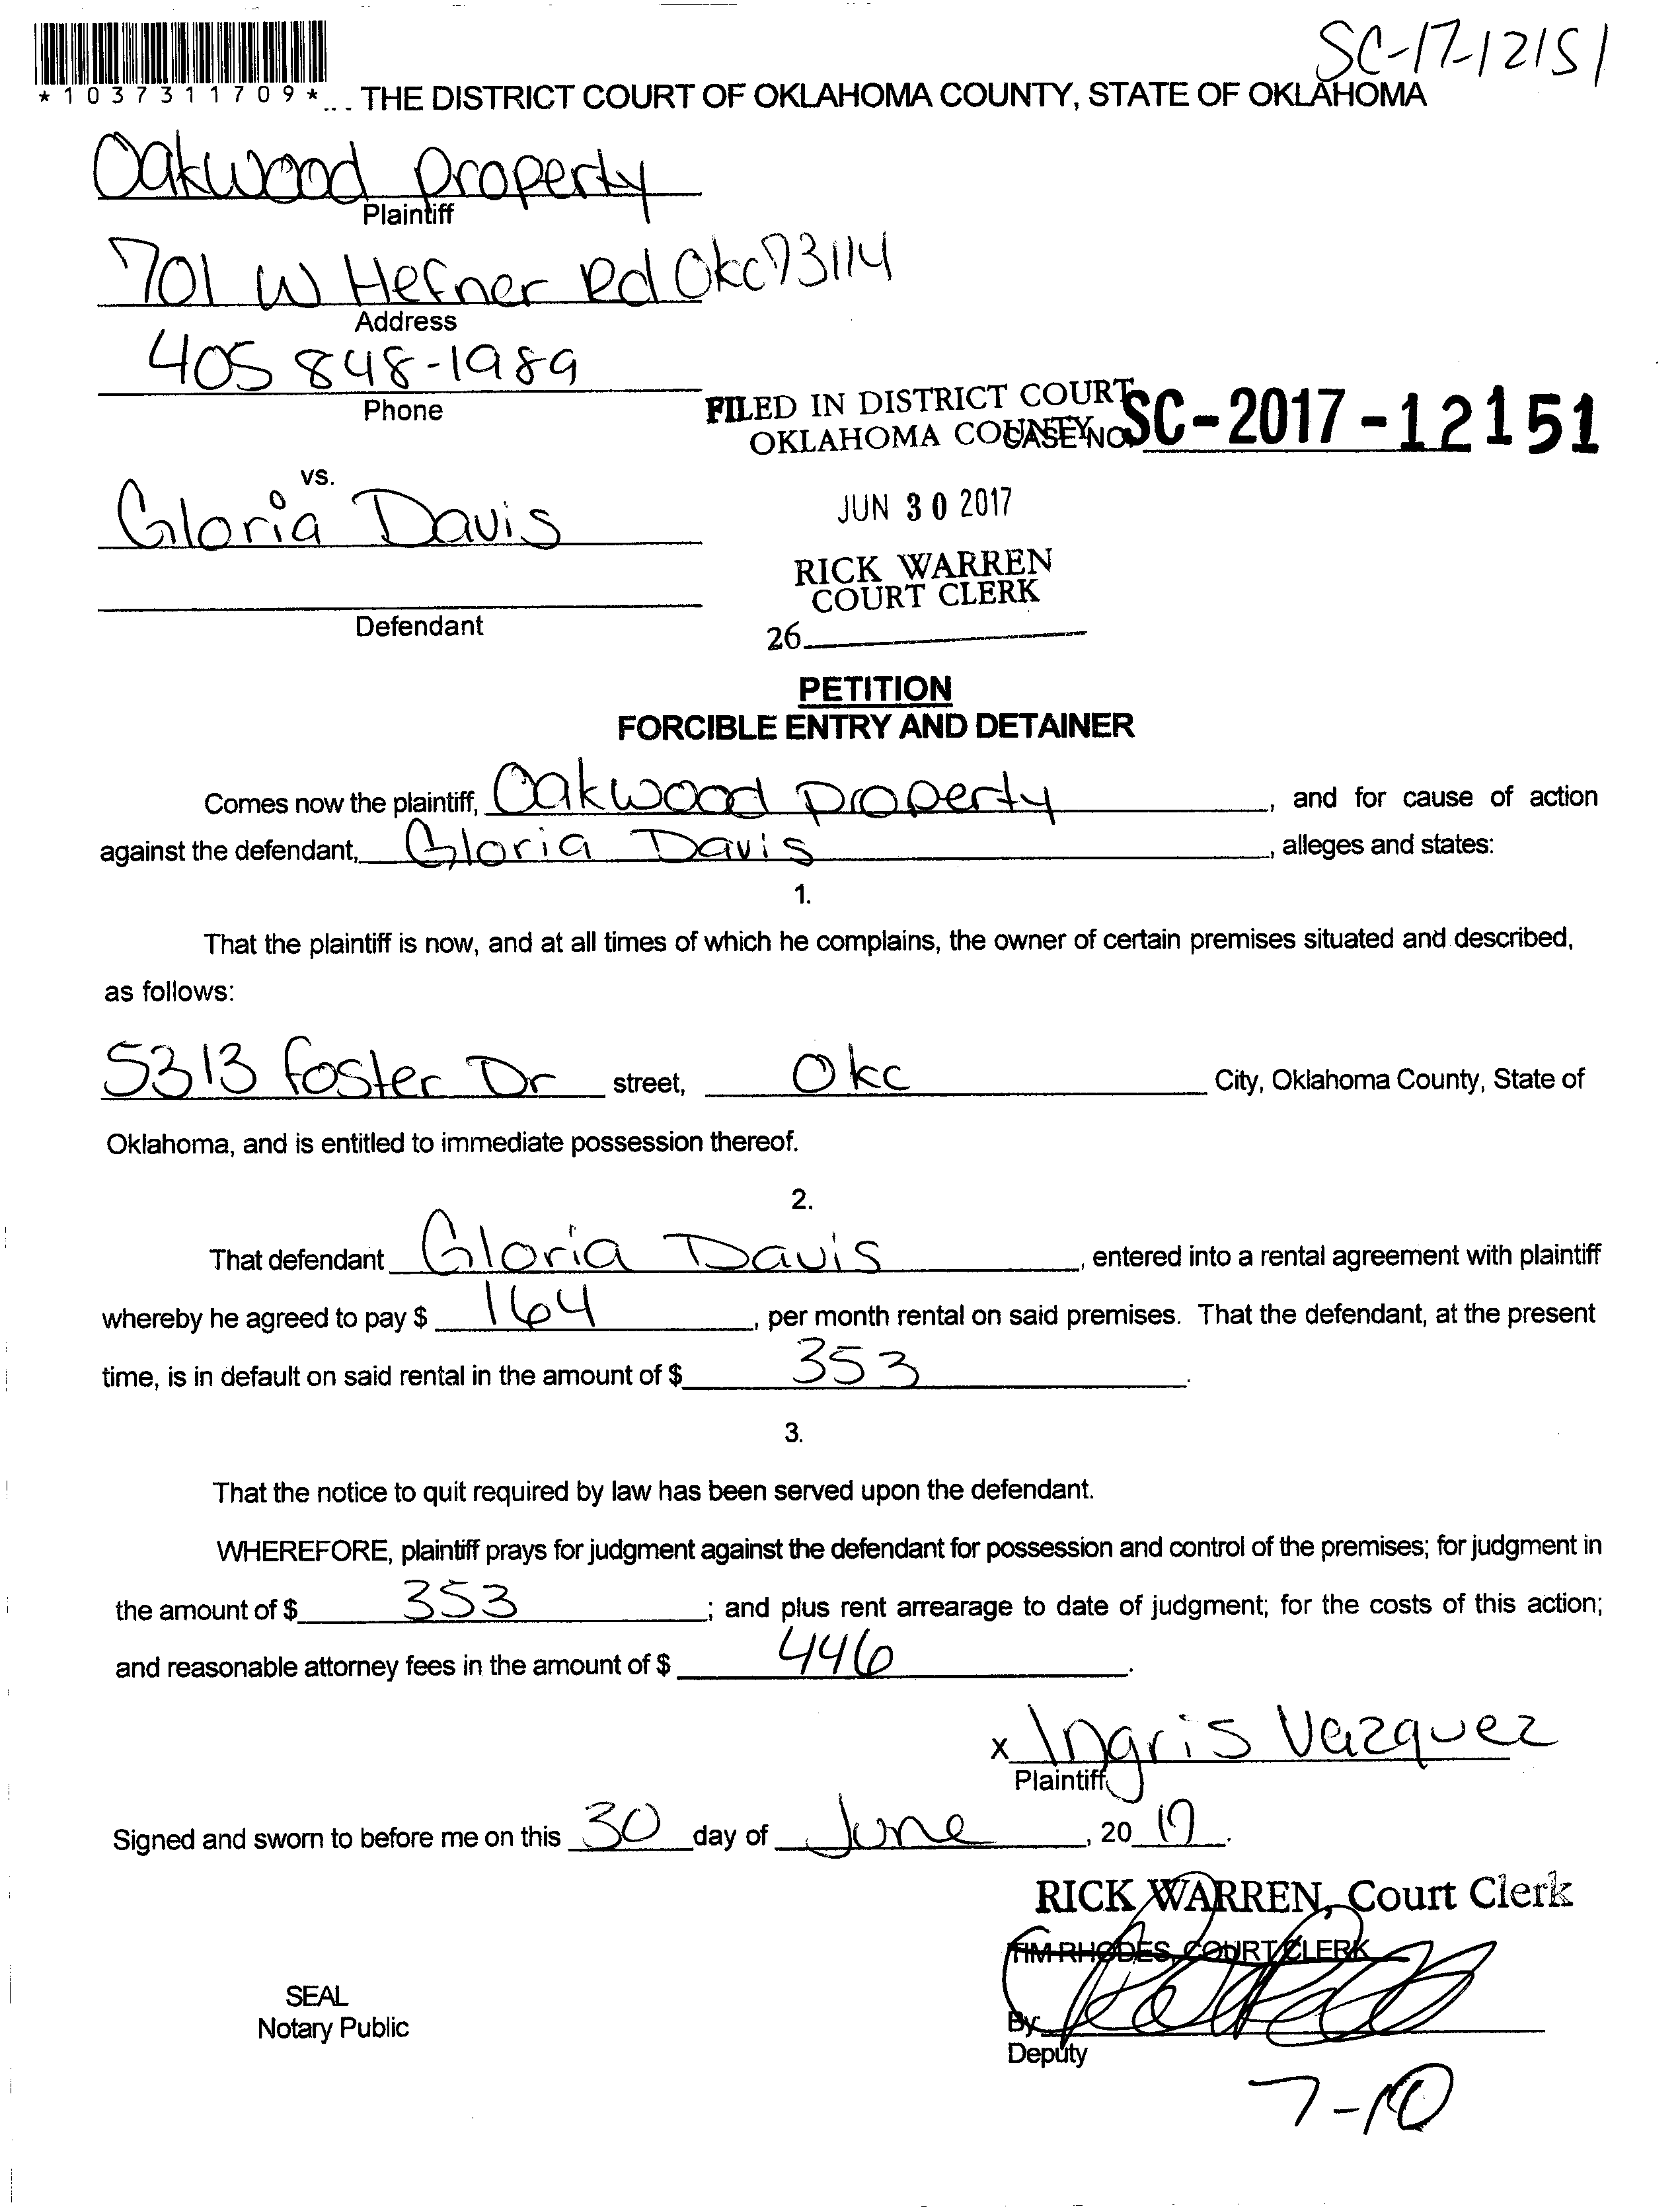 SC-17-12151
*1037311709*... THE DISTRICT COURT OF OKLAHOMA COUNTY, STATE OF OKLAHOMA
Oakwood property
Plaintiff
701 W Hefner Rd Okc 73114
Address
405 848-1989
Phone
FILED IN DISTRICT COURT
OKLAHOMA COUNTY
CASE NO. SC-2017-12151
vs.
JUN 30 2017
Gloria Davis
RICK WARREN
COURT CLERK
Defendant
26
PETITION
FORCIBLE ENTRY AND DETAINER
Comes now the plaintiff, Oakwood property, and for cause of action
against the defendant, Gloria Davis, alleges and states:
1.
That the plaintiff is now, and at all times of which he complains, the owner of certain premises situated and described,
as follows:
5313 Foster Dr street, Okc City, Oklahoma County, State of
Oklahoma, and is entitled to immediate possession thereof.
2.
That defendant Gloria Davis, entered into a rental agreement with plaintiff
whereby he agreed to pay $ 164, per month rental on said premises. That the defendant, at the present
time, is in default on said rental in the amount of $ 353.
3.
That the notice to quit required by law has been served upon the defendant.
WHEREFORE, plaintiff prays for judgment against the defendant for possession and control of the premises; for judgment in
the amount of $ 353; and plus rent arrearage to date of judgment; for the costs of this action;
and reasonable attorney fees in the amount of $ 446.
x Ingris Vazquez
Plaintiff
Signed and sworn to before me on this 30 day of June, 20 17.
RICK WARREN, Court Clerk
TIM RHODES, COURT CLERK
SEAL
Notary Public
By
Deputy
7-10